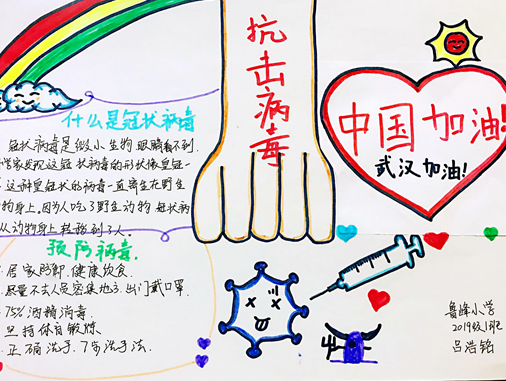 什么是冠状病毒
冠状病毒是微小生物眼睛看不到
学家发现这冠状病毒的形状像皇冠一
这种皇冠状的病毒一直寄生在野生
物身上。因为人吃了野生动物 冠状病
从动物身上转移到了人。
抗击病毒
中国加油!
武汉加油!
预防病毒
居家防御.健康饮食.
尽量不去人员密集地了.出门戴口罩
75%酒精消毒.
坚持体育锻炼
正确洗手.7步洗手法.
鲁峰小学
2019级1班
吕浩铭